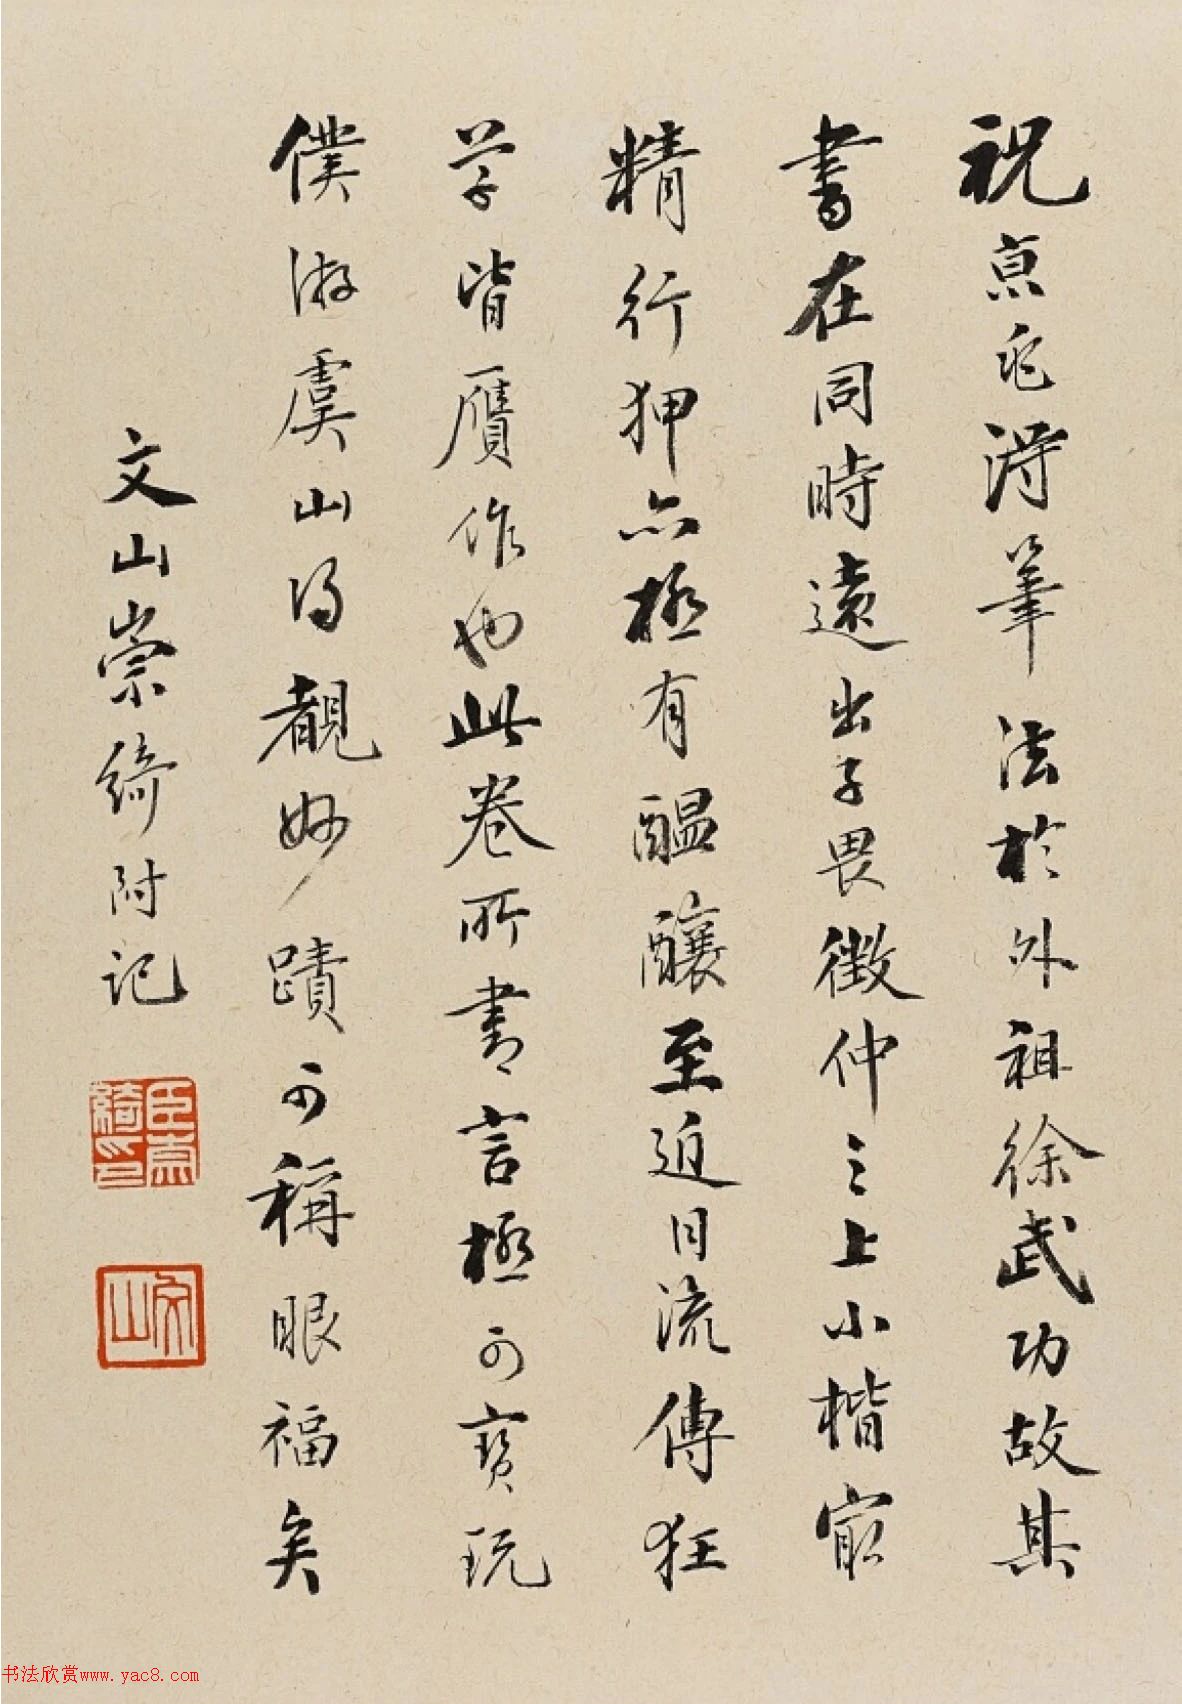 祝京兆得筆法於外祖徐武功故其
書在同時遠出子畏徵仲之上小楷寂
精行狎亦極有醞釀至近日流傳狂
草皆贋作也此卷所書言極可寶玩
僕游虞山得覩妙蹟可稱眼福矣
文山崇綺附記
臣崇綺印
文山
书法欣赏www.yac8.com